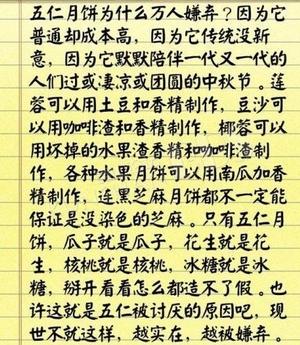 五仁月饼为什么万人嫌弃？因为它
普通却成本高，因为它传统没新
意，因为它默默陪伴一代又一代的
人们过或凄凉或团圆的中秋节。莲
蓉可以用土豆和香精制作，豆沙可
以用咖啡渣和香精制作，椰蓉可以
用坏掉的水果渣香精和咖啡渣制
作，各种水果月饼可以用南瓜加香
精制作，连黑芝麻月饼都不一定能
保证是没染色的芝麻。只有五仁月
饼，瓜子就是瓜子，花生就是花
生，核桃就是核桃，冰糖就是冰
糖，掰开看看怎么都造不了假。也
许这就是五仁被讨厌的原因吧，现
世不就这样，越实在，越被嫌弃。